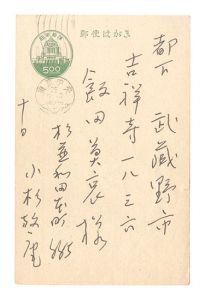 郵便はがき
5.00
都下 武蔵野市
吉祥寺一八三六
飯田莫哀様
杉並和田本町
十日 小杉放庵